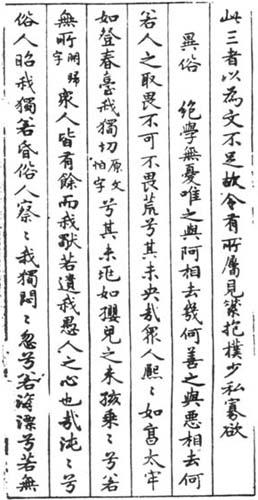 此三者以為文不足故令有所屬見素抱樸少私寡欲
異俗　絕學無憂唯之與阿相去幾何善之與惡相去何
若人之所畏不可不畏荒兮其未央哉眾人熙〻如享太牢
如登春臺我獨切原文怕字兮其未兆如嬰兒之未孩乘〻兮若
無所歸字眾人皆有餘而我獨若遺我愚人之心也哉沌〻兮
俗人昭我獨若昏俗人察〻我獨悶〻忽兮若海漂兮若無